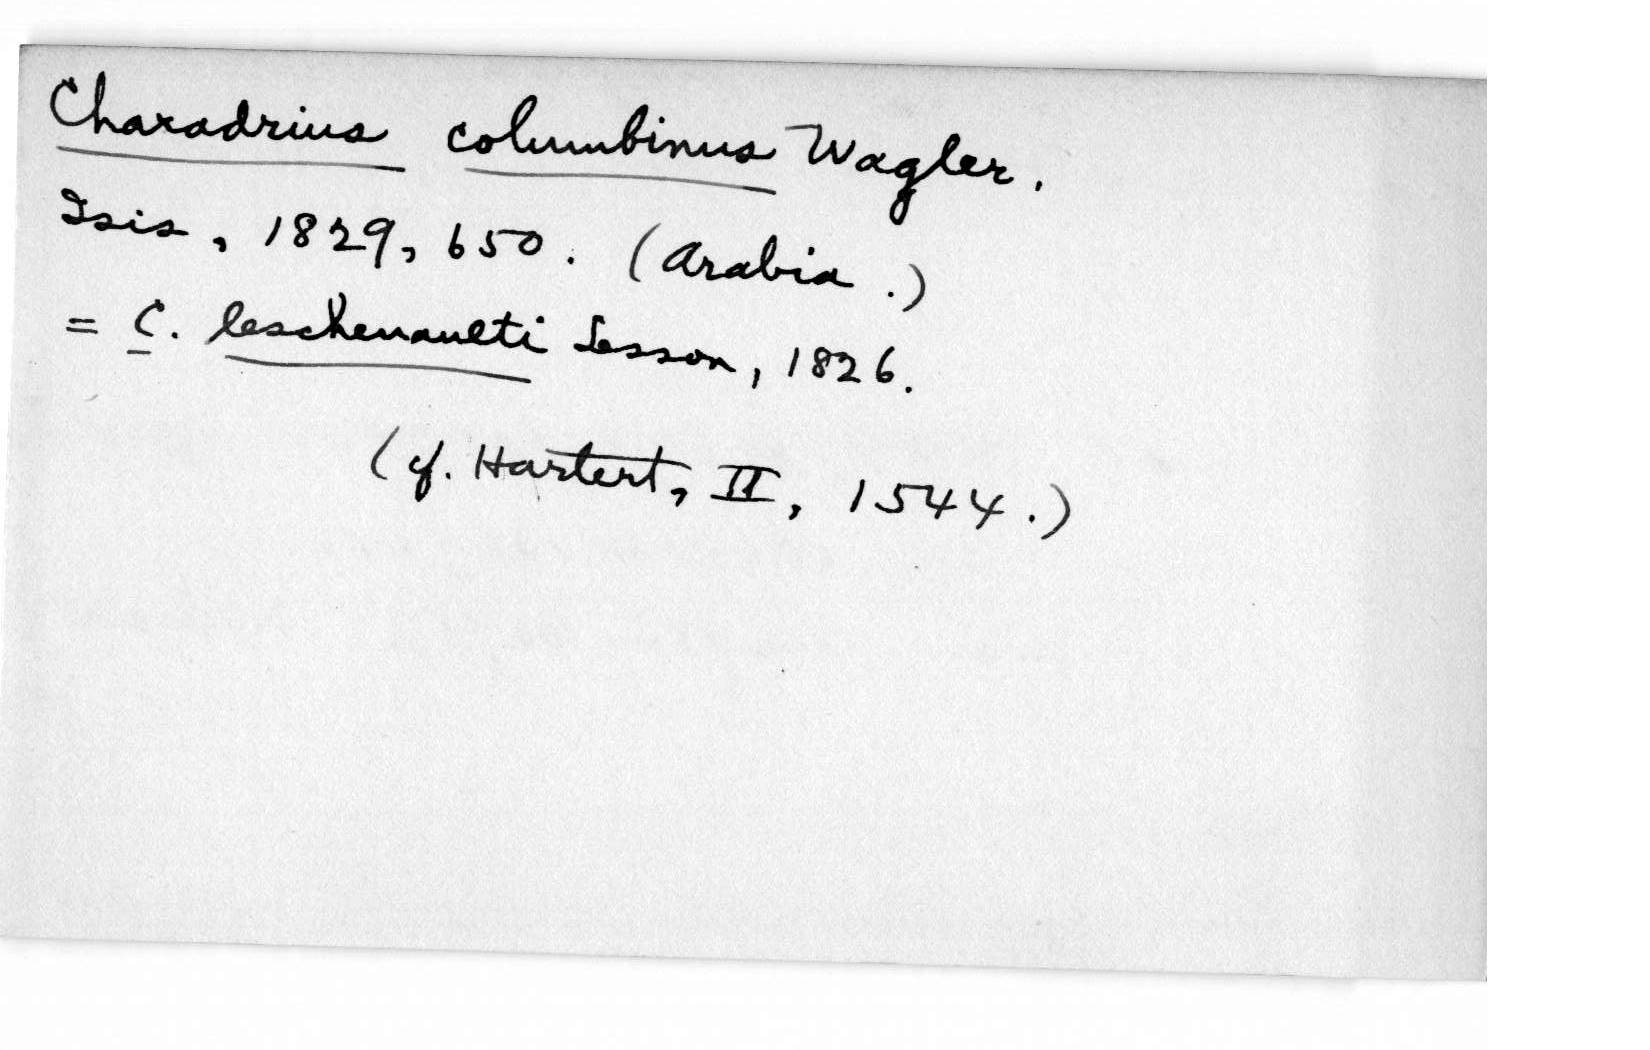 Charadrius columbinus Wagler.
Isis, 1829, 650. (Arabia.)
= C. leschenaulti Lesson, 1826.
(cf. Hartert, II, 1544.)